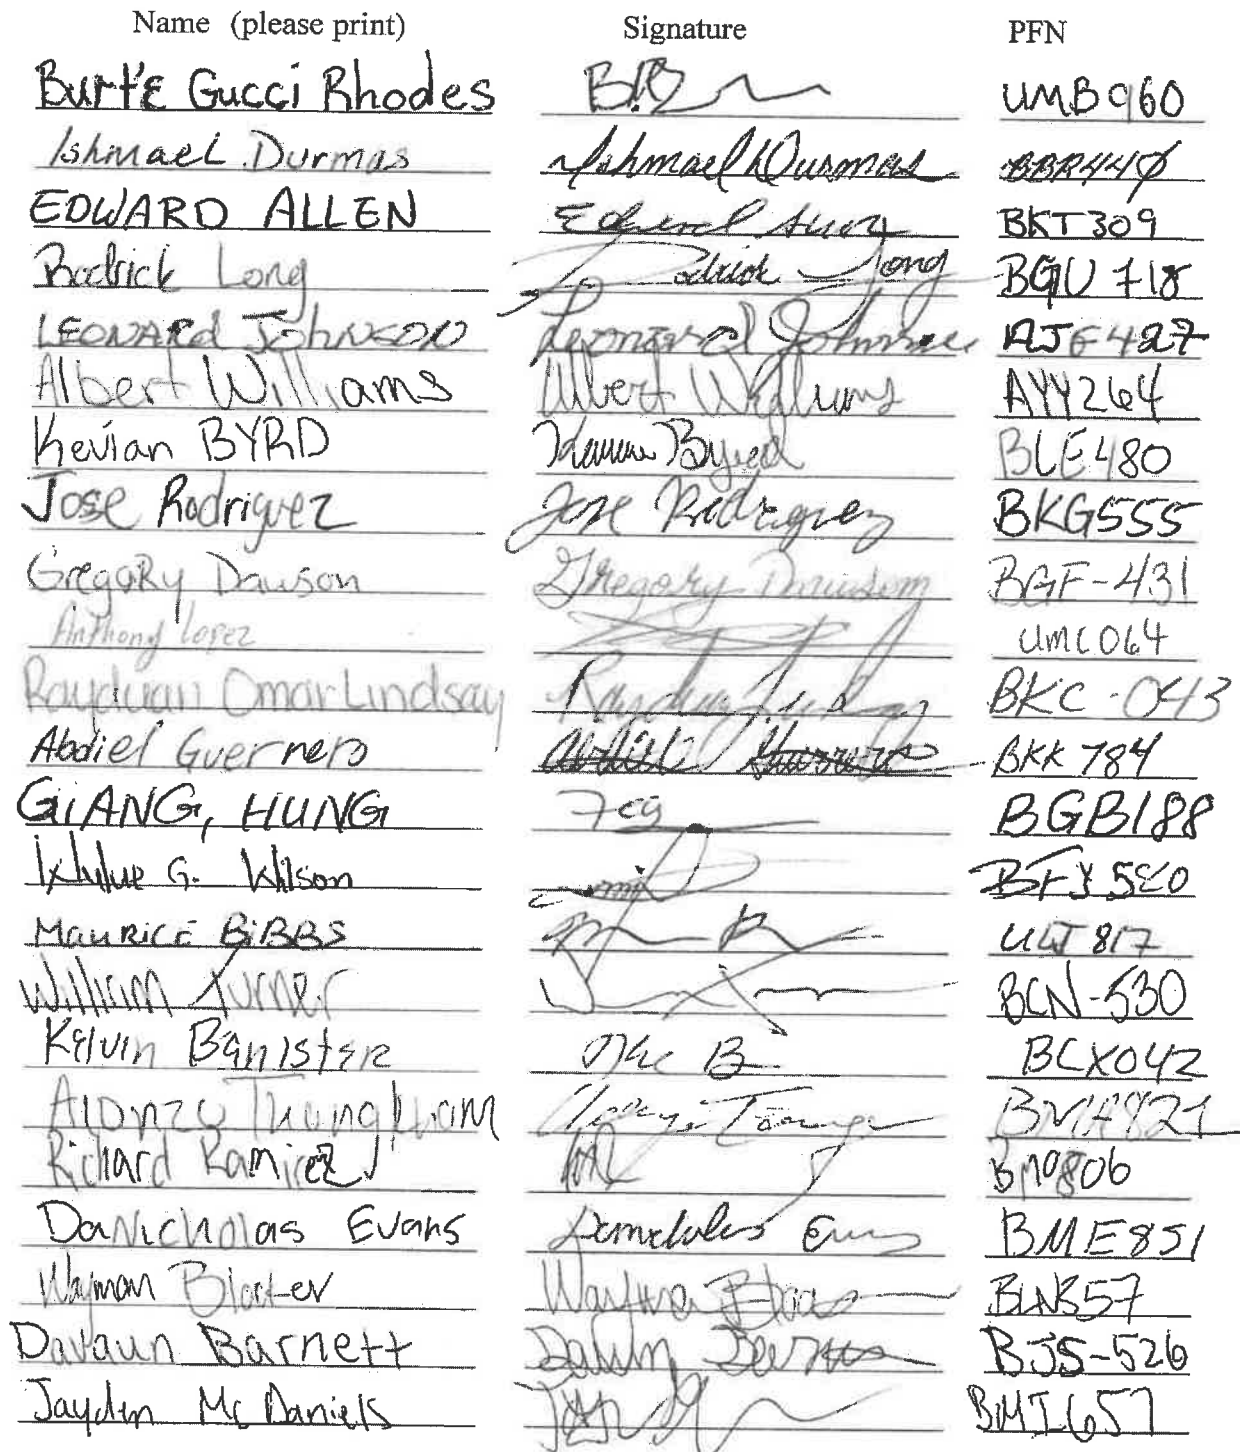 Name (please print) Signature PFN
Burt'E Gucci Rhodes UMB960
Ishmael Durmas Ishmael Durmas BBR440
EDWARD ALLEN Edward Allen BKT309
Rodrick Long Rodrick Long BGU 718
LEONARd JohNSON Leonard Johnson 427
Albert Williams Albert Williams AYY264
Kevian BYRD Kevian Byrd BLE480
Jose Rodriguez Jose Rodriguez BKG555
GregoRy Dawson Gregory Dawson BGF-431
Anthony lopez UML064
Rayduan Omar Lindsay Rayduan Lindsay BKC-043
Abdiel Guerrero Abdiel Guerrero BKK 784
GiANG, HUNG BGB188
G. Wilson
MauRicE BiBBS 817
William Turner BCN-530
Kelvin Banister B BCX042
Alonzo BMA821
Richard Ramirez 806
DaNicholas Evans Danicholas Evans BME851
Wayman Blocker Wayman
Davaun Barnett BJS-526
Jayden McDaniels BMI657